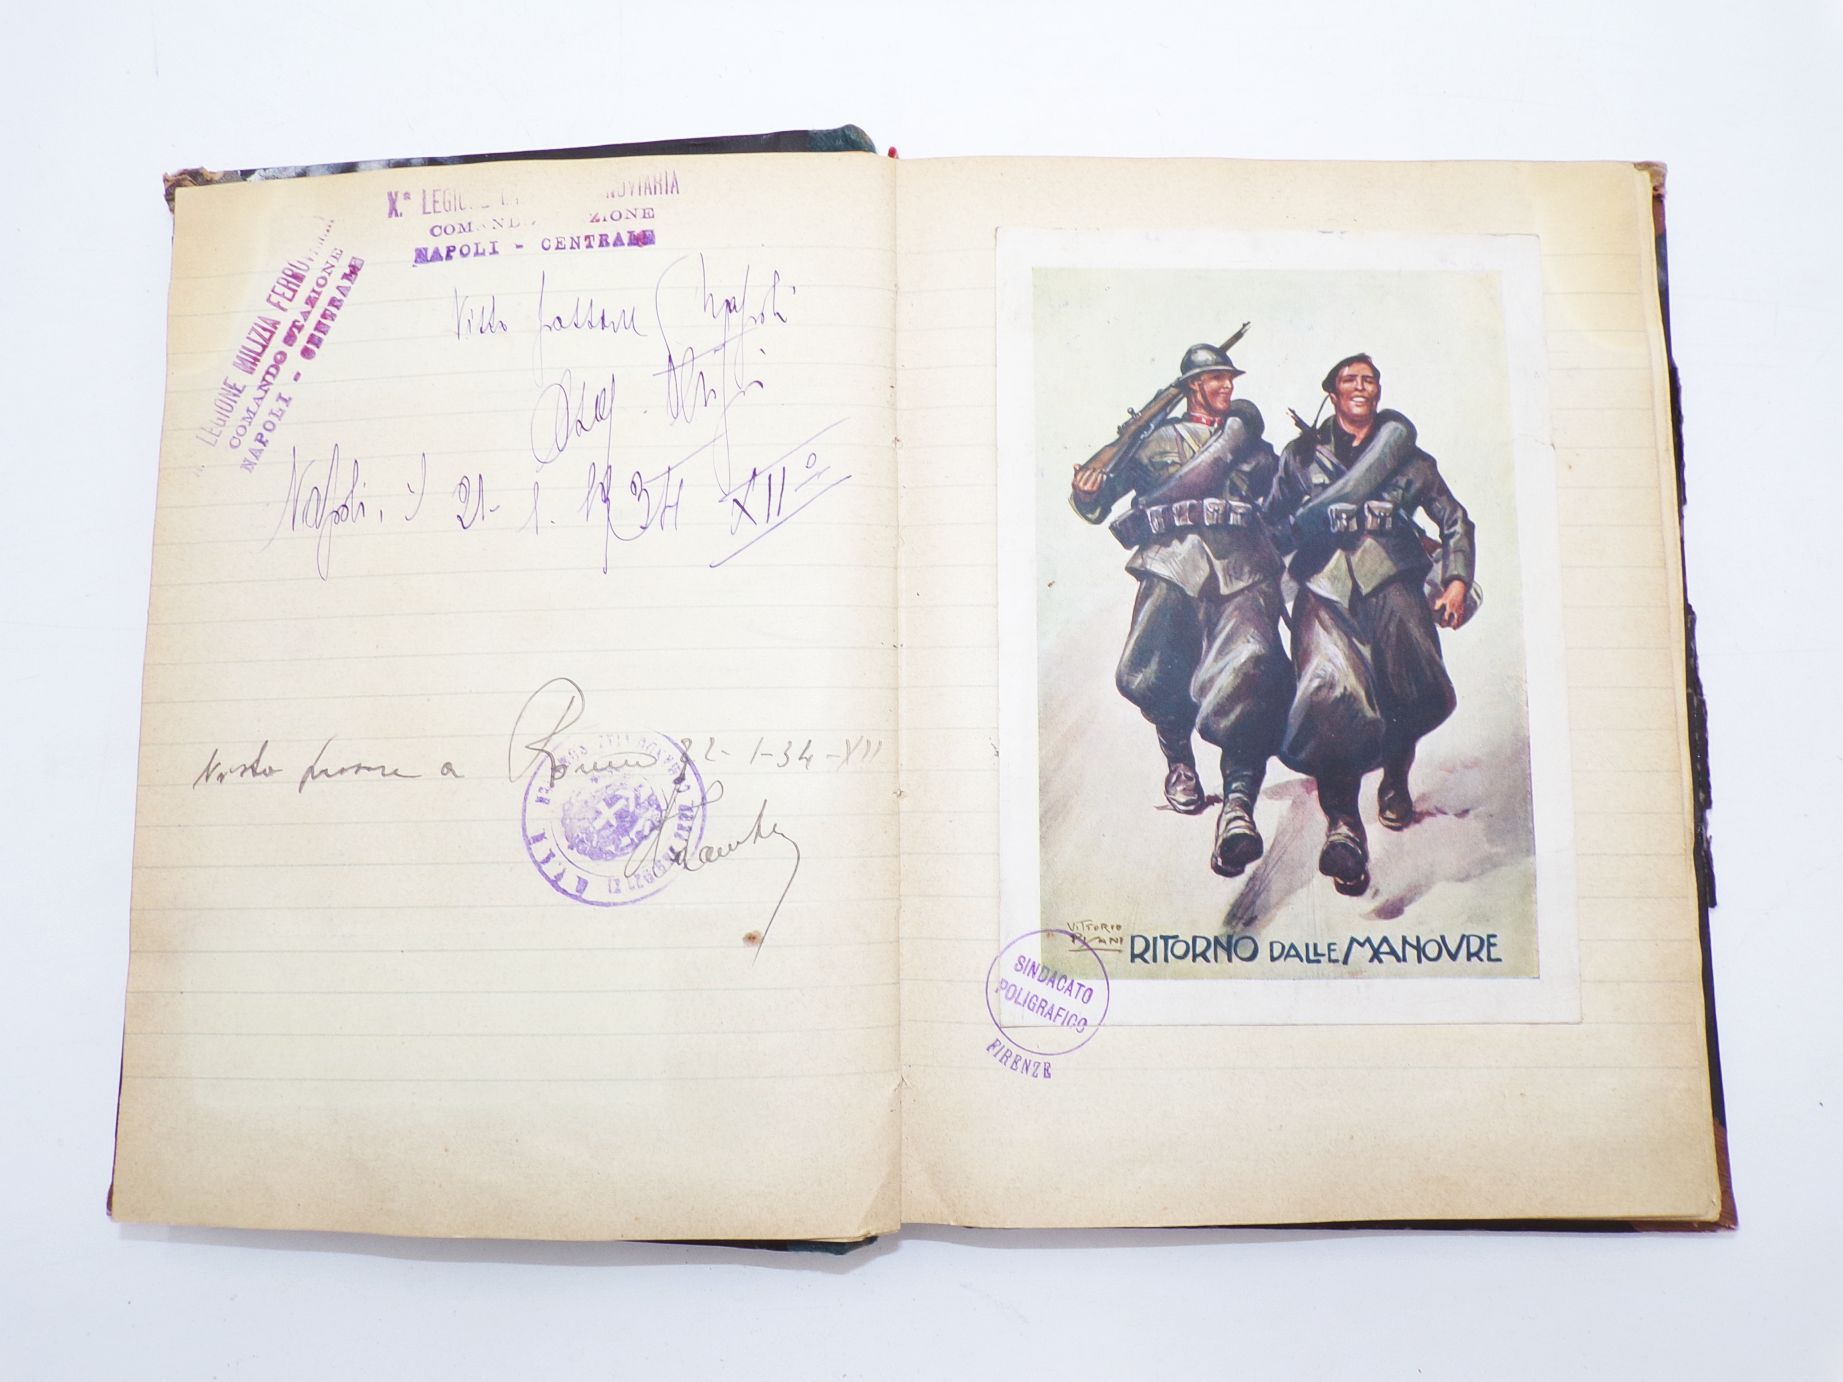 X.ª LEGIONE NOVIARIA
COMANDO ZIONE
NAPOLI - CENTRALE
LEGIONE MILIZIA FERROVIARIA
COMANDO STAZIONE
NAPOLI - CENTRALE
Visto passare Napoli
Napoli, il 21-1-1934 XIIº
Visto passare a Roma 22-1-34-XII
VITTORIO
PISANI
RITORNO DALLE MANOVRE
SINDACATO
POLIGRAFICO
FIRENZE